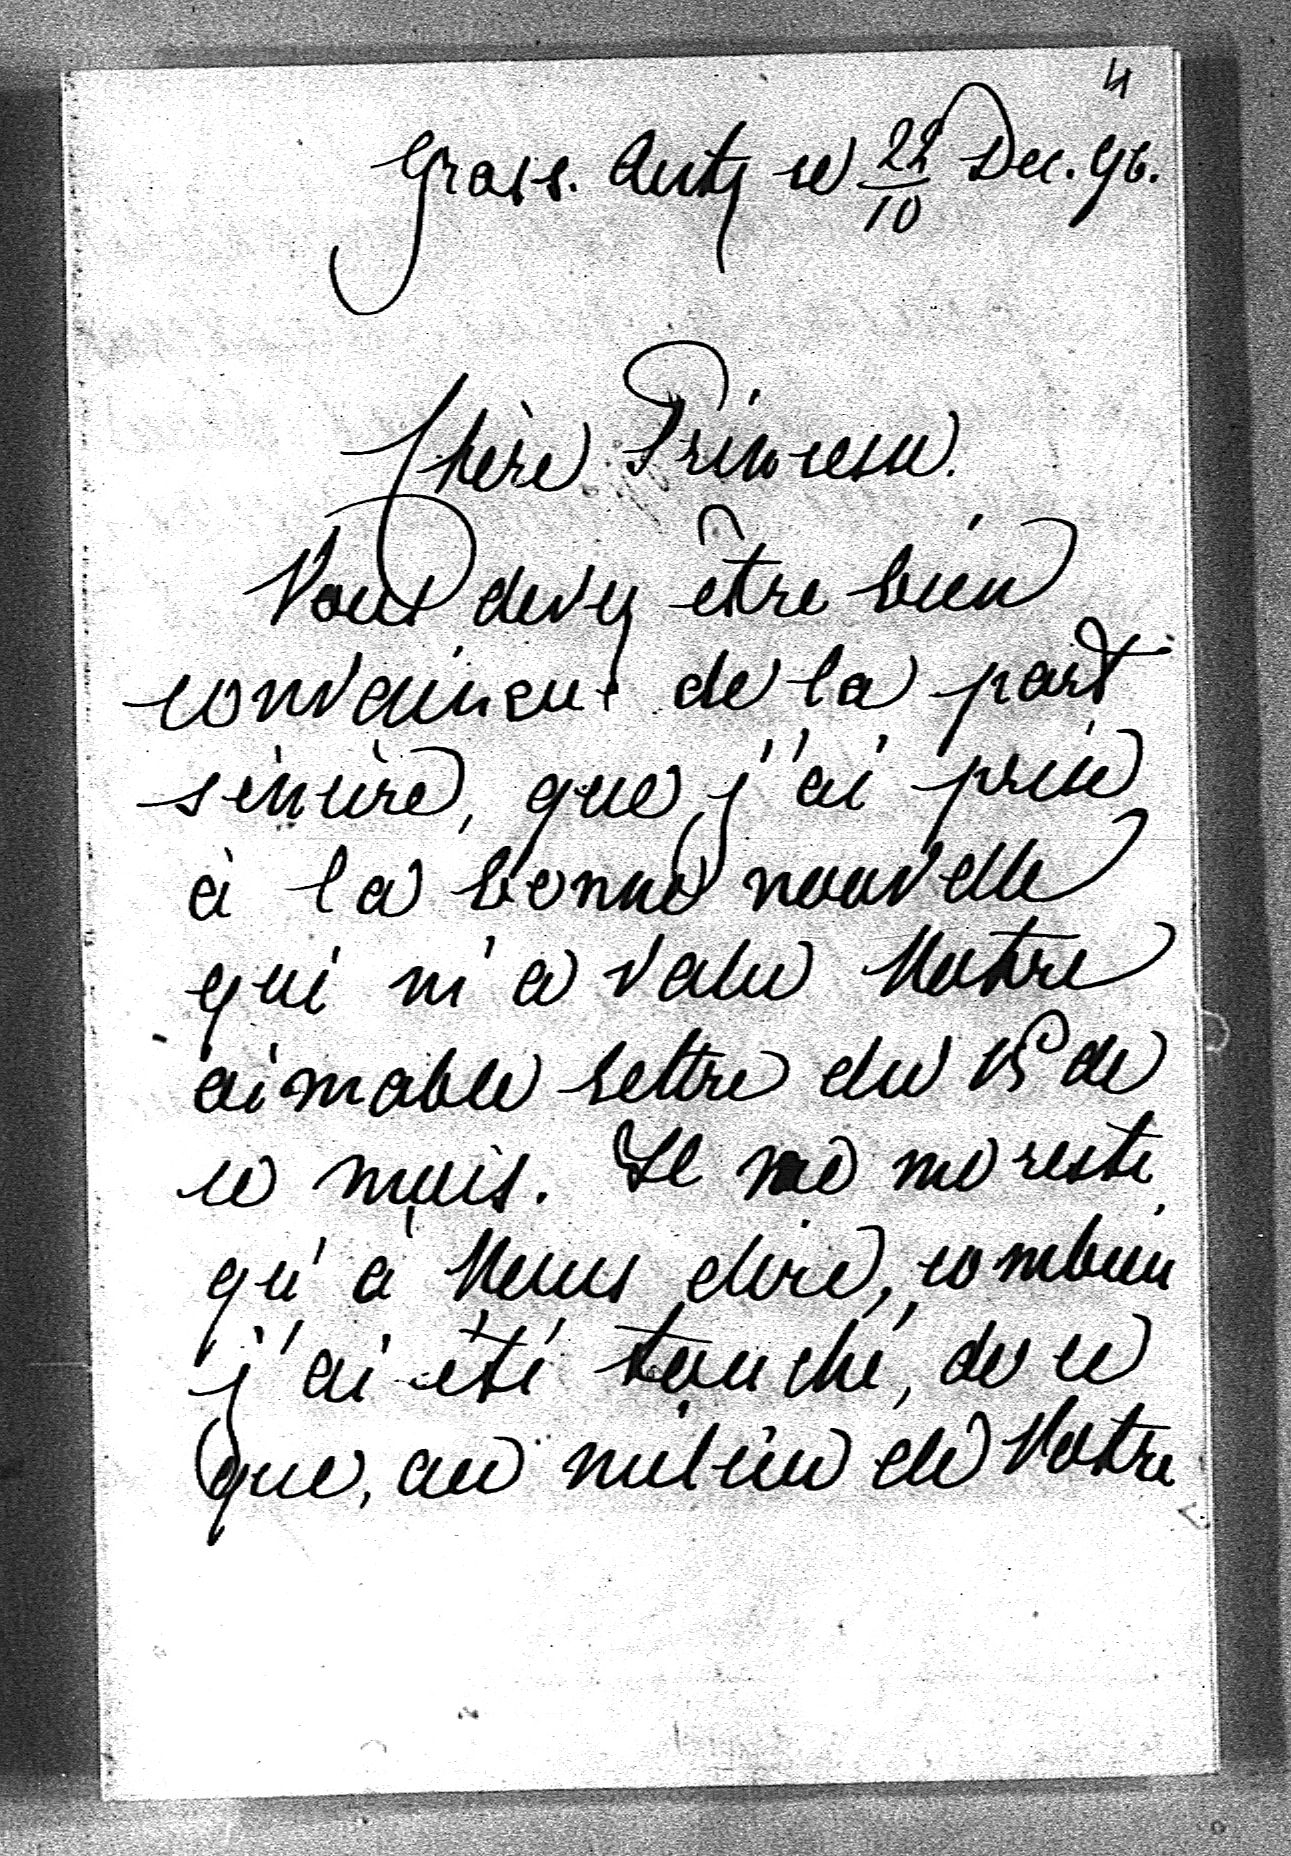 4
Gross. Autz ce 22/10 Dec. 96.
Chère Princesse.
Vous devez être bien
convaincue de la part
sincère, que j'ai prise
à la bonne nouvelle
qui m'a valu Votre
aimable lettre du 15 de
ce mois. Il ne me reste
qu'à Vous dire, combien
j'ai été touché, de ce
que, au milieu de Votre